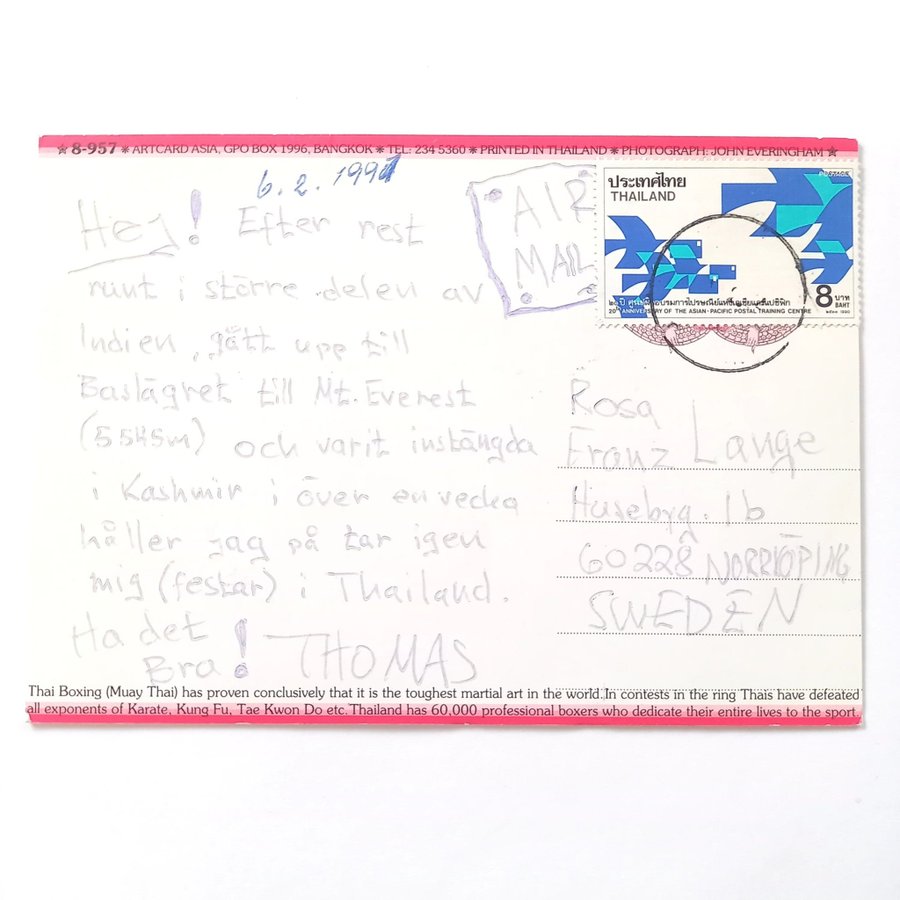 ☆ 8-957 ✳ ARTCARD ASIA, GPO BOX 1996, BANGKOK ✳ TEL: 234 5360 ✳ PRINTED IN THAILAND ✳ PHOTOGRAPH: JOHN EVERINGHAM ☆
6.2.1991
Hey! Efter rest
runt i större delen av
Indien, gått upp till
Baslägret till Mt. Everest
(5545m) och varit instängda
i Kashmir i över en vecka
håller jag på tar igen
mig (festar) i Thailand.
Ha det
Bra! THOMAS
AIR
MAIL
ประเทศไทย
THAILAND
PORTAGE
๒๐ ปี ศูนย์ฝึกอบรมการไปรษณีย์แห่งเอเชียและแปซิฟิก
20th ANNIVERSARY OF THE ASIAN-PACIFIC POSTAL TRAINING CENTRE
8 บาท
BAHT
๒๕๓๓ 1990
Rosa
Franz Lange
Husebyg. 1b
60228 NORRKÖPING
SWEDEN
Thai Boxing (Muay Thai) has proven conclusively that it is the toughest martial art in the world. In contests in the ring Thais have defeated
all exponents of Karate, Kung Fu, Tae Kwon Do etc. Thailand has 60,000 professional boxers who dedicate their entire lives to the sport.